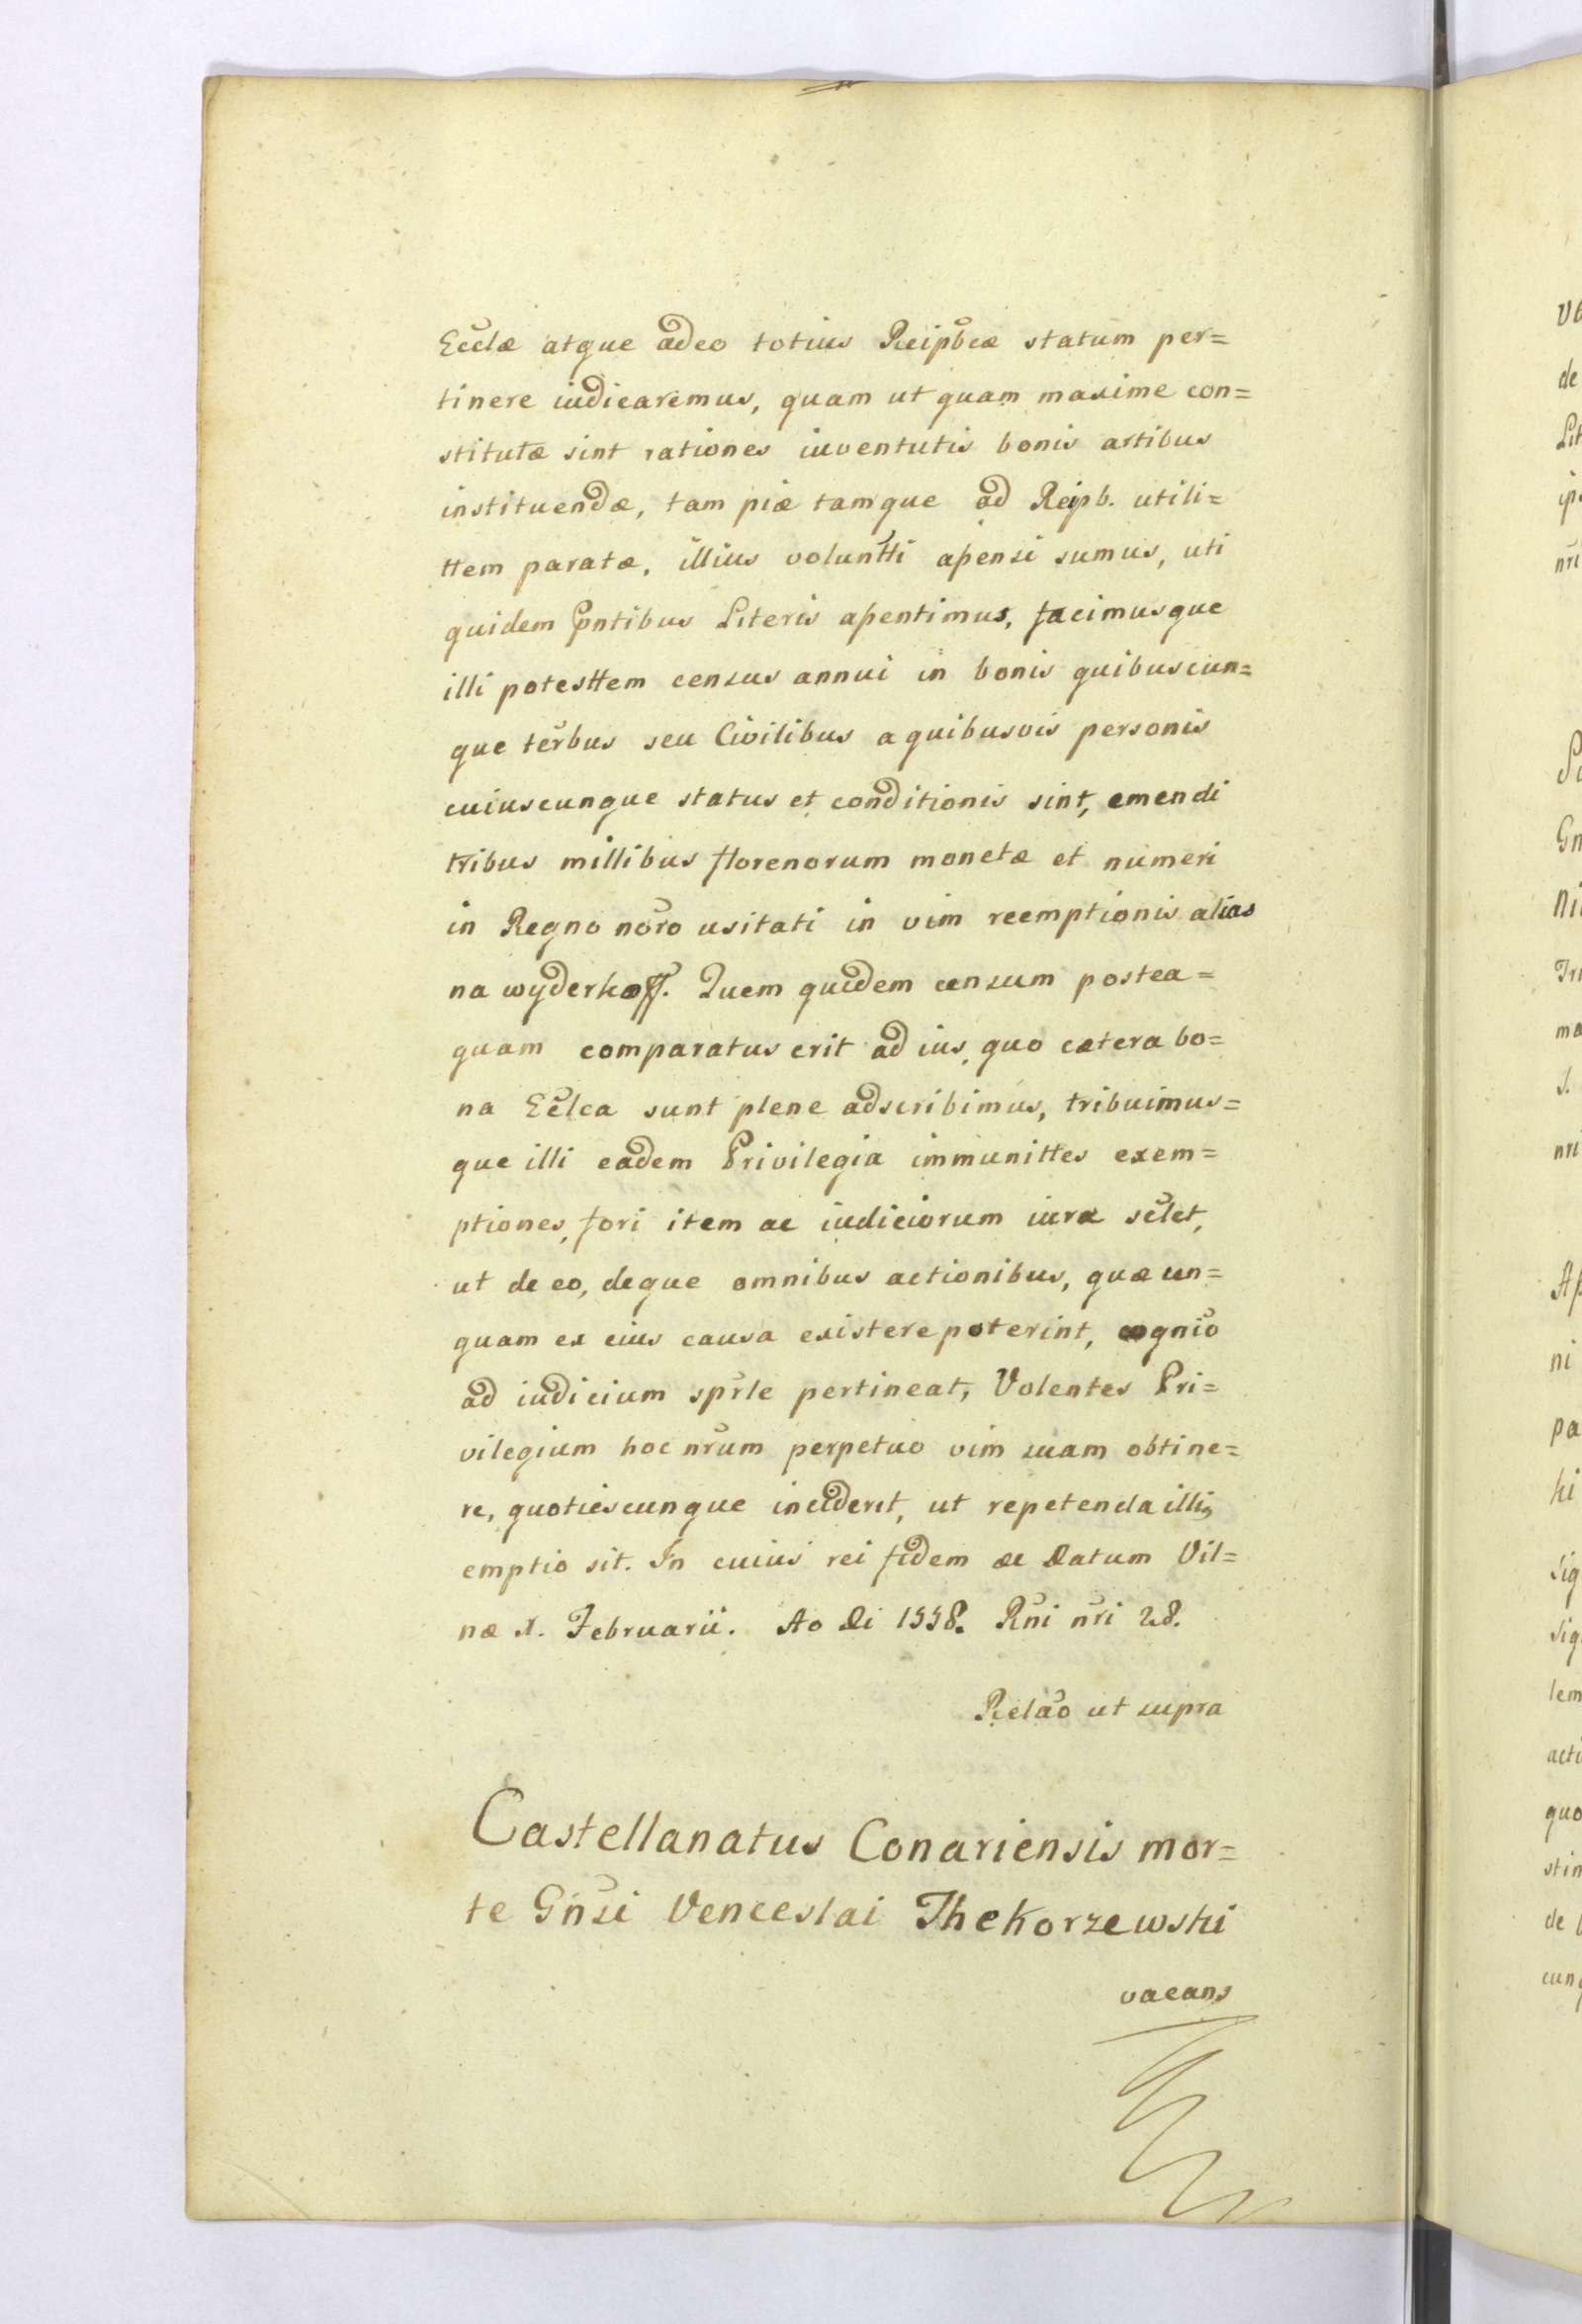 Ecclæ atque adeo totius Reipbcæ statum per=
tinere iudicaremus, quam ut quam maxime con=
stitutæ sint rationes iuventutis bonis artibus
instituendæ, tam piæ tamque ad Reipb. utili=
ttem paratæ, illius voluntti aßensi sumus, uti
quidem pntibus Literis aßentimus, facimusque
illi potesttem census annui in bonis quibuscun=
que terbus seu Civilibus a quibusvis personis
cuiuscunque status et conditionis sint, emendi
tribus millibus florenorum monetæ et numeri
in Regno noro usitati in vim reemptionis alias
na wyderkoff. Quem quidem censum postea=
quam comparatus erit ad ius, quo cætera bo=
na Eclca sunt plene adscribimus, tribuimus=
que illi eadem Privilegia immunittes exem=
ptiones, fori item ac iudiciorum iura sclet,
ut de eo, deque omnibus actionibus, quæ un=
quam ex eius causa existere poterint, cognio
ad iudicium sprle pertineat, Volentes Pri=
vilegium hoc nrum perpetuo vim suam obtine=
re, quotiescunque inciderit, ut repetenda illis
emptio sit. In cuius rei fidem &c Datum Vil=
næ X. Februarii. Ao Di 1558. Rni nri 28.
Relao ut supra
Castellanatus Conariensis mor=
te Gnsi Venceslai Thekorzewski
vacans